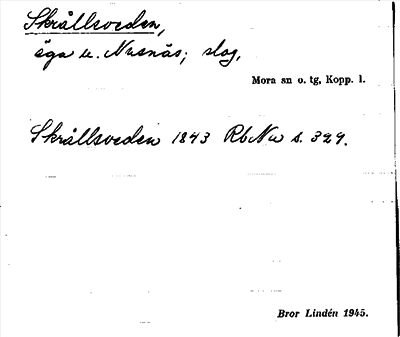 Skrållsveden,
äga u. Nusnäs; slog.
Mora sn o. tg, Kopp. l.
Skrållsveden 1843 RbNu s. 329.
Bror Lindén 1945.